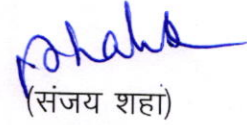 (संजय शहा)